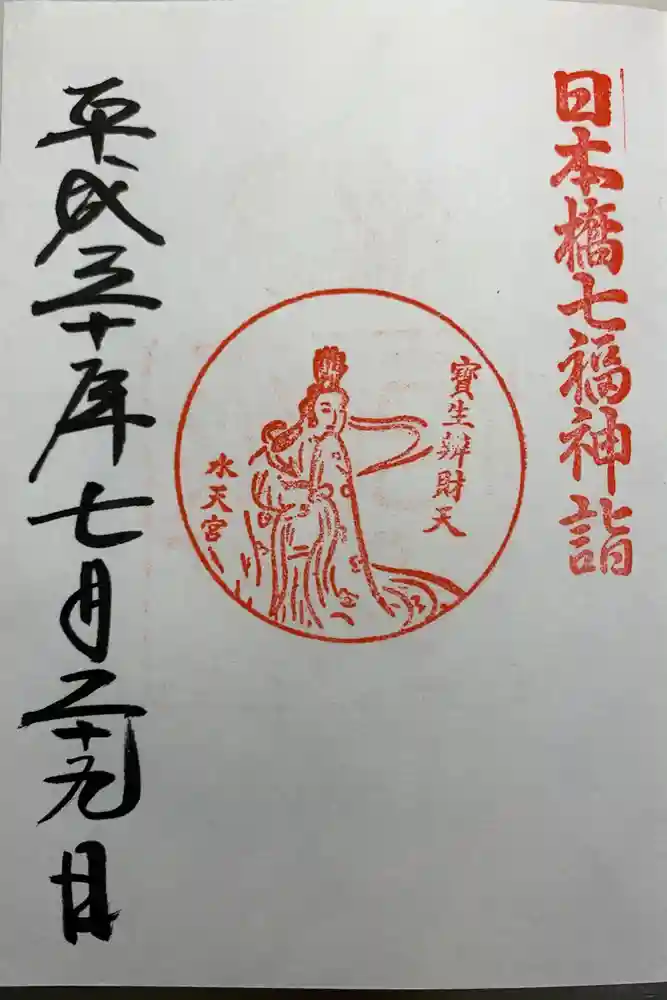 日本橋七福神詣
寶生辨財天
水天宮
平成三十年七月二十九日